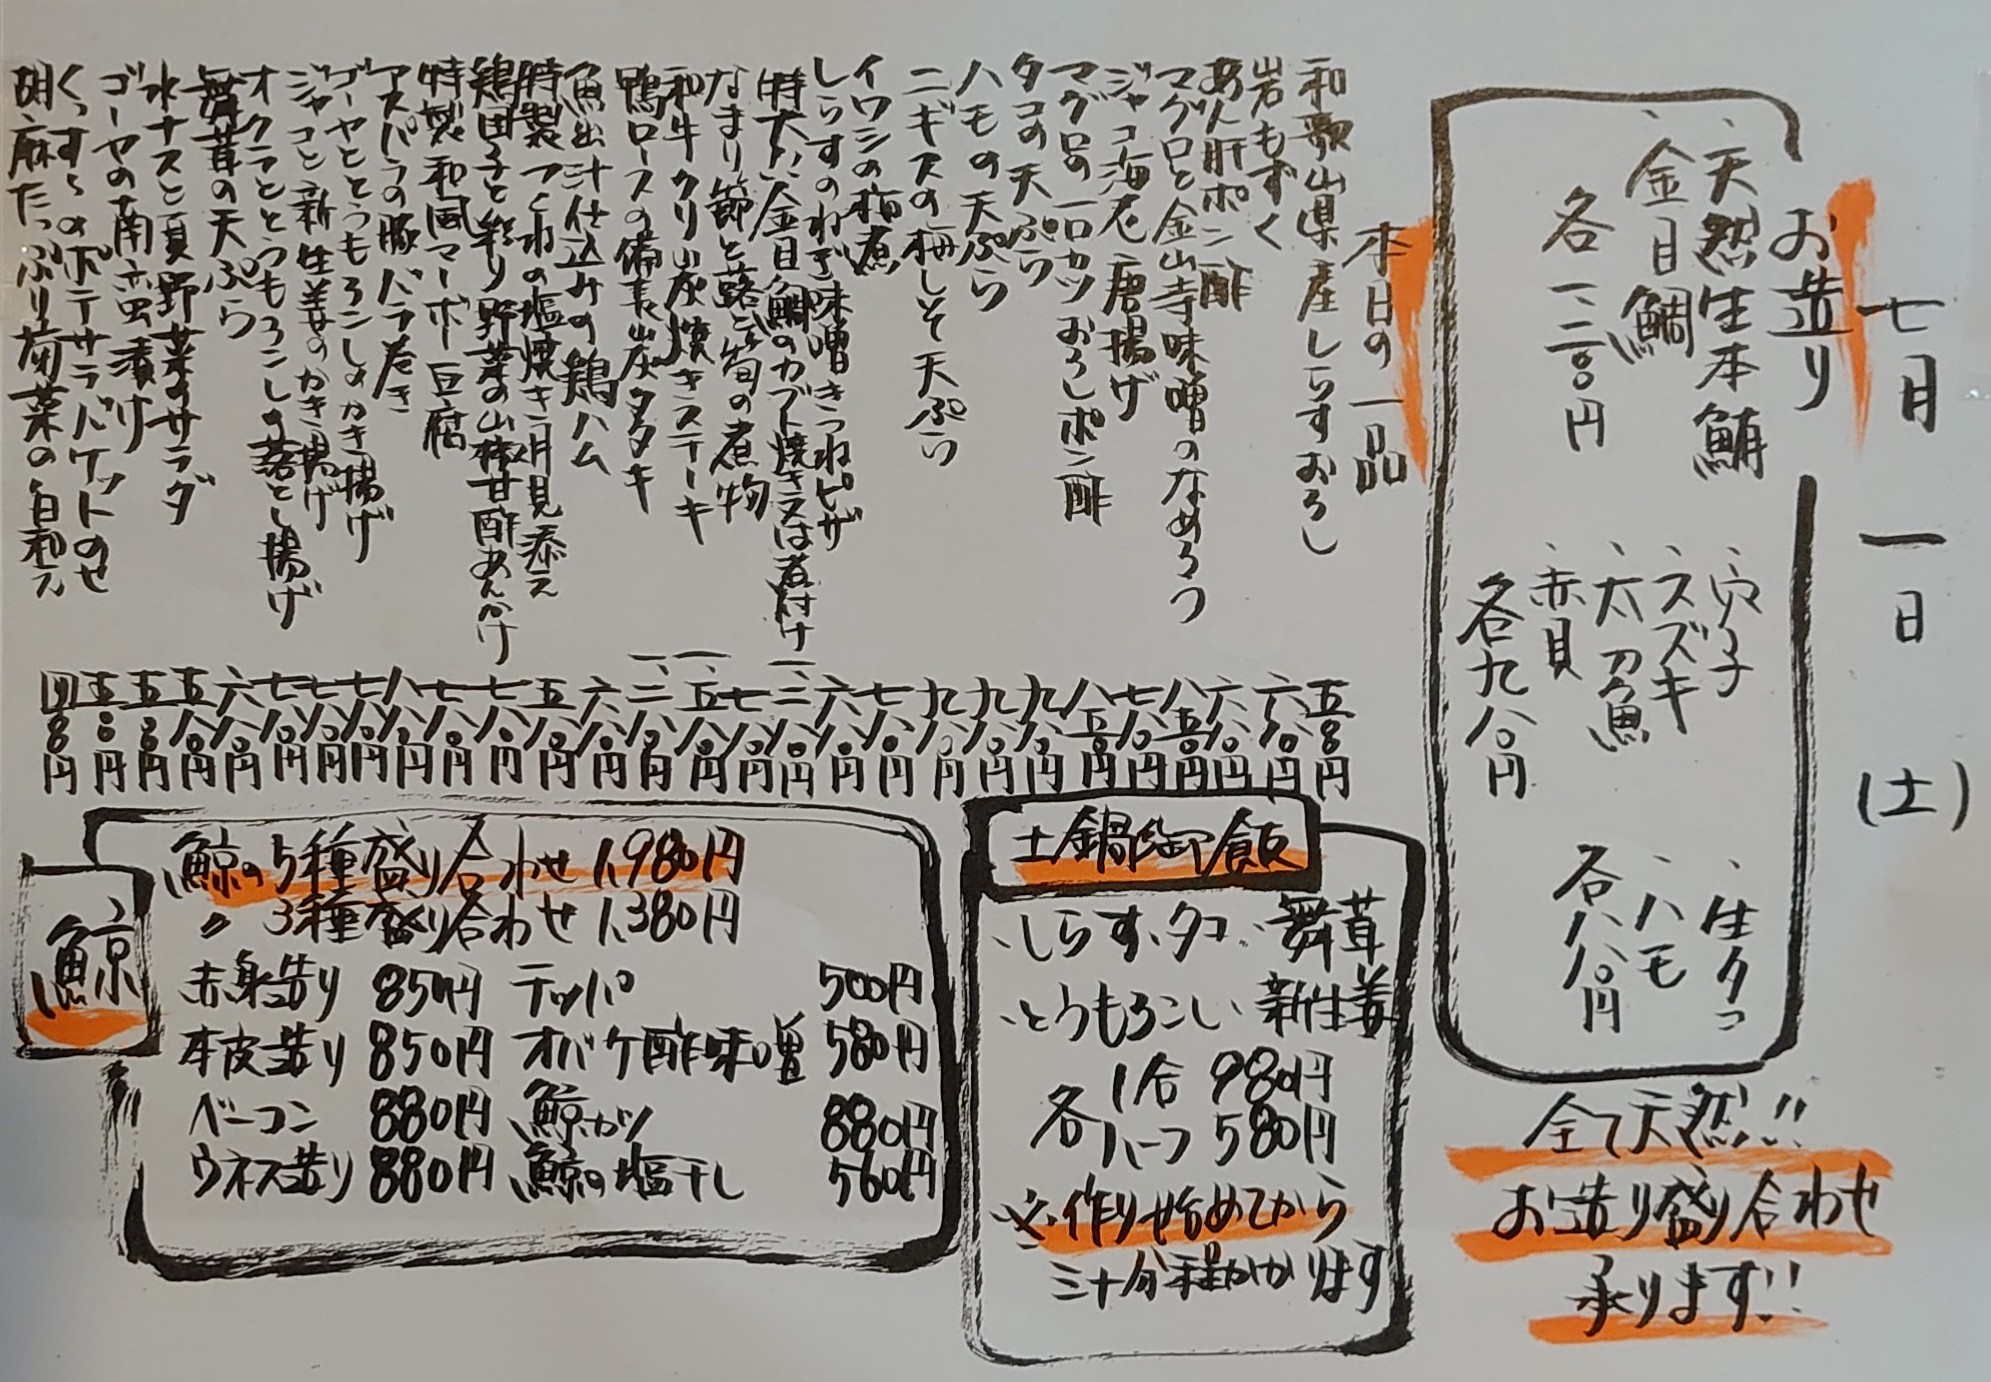 七月一日(土)
お造り
、天然生本鮪
、金目鯛
各一、二八〇円
、穴子
、スズキ
、太刀魚
、赤貝
各九八〇円
、生タコ
、ハモ
各八八〇円
全て天然!!
お造り盛り合わせ
承ります!!
本日の一品
和歌山県産しらすおろし 五八〇円
岩もずく 六八〇円
あん肝ポン酢 六八〇円
マグロと金山寺味噌のなめろう 八五〇円
ジャコ海老唐揚げ 七八〇円
マグロの一口カツおろしポン酢 八五〇円
タコの天ぷら 九八〇円
ハモの天ぷら 九八〇円
ニギスの梅しそ天ぷら 九八〇円
イワシの梅煮 七八〇円
しらすのねぎ味噌きつねピザ 六八〇円
特大!!金目鯛のカブト焼き又は煮付け 一、二八〇円
なまり節と蕗と筍の煮物 七八〇円
和牛クリ炭焼きステーキ 一、五八〇円
鴨ロースの備長炭タタキ 一、二八〇円
魚出汁仕込みの鶏ハム 六八〇円
特製つくねの塩焼き月見添え 五八〇円
鶏団子と彩り野菜の山椒甘酢あんかけ 七八〇円
特製和風マーボ豆腐 七八〇円
アスパラの豚バラ巻き 八八〇円
ゴーヤととうもろこしのかき揚げ 七八〇円
ジャコと新生姜のかき揚げ 七八〇円
オクラととうもろこしの落とし揚げ 七八〇円
舞茸の天ぷら 六八〇円
水ナスと夏野菜のサラダ 五八〇円
ゴーヤの南蛮漬け 五八〇円
のポテサラバケットのせ 五八〇円
胡麻たっぷり菊菜の白和え 四八〇円
土鍋御飯
、しらす、タコ、舞茸
、とうもろこし、新生姜
各 1合 980円
ハーフ 580円
※作り始めてから
三十分程かかります
鯨
鯨の5種盛り合わせ 1,980円
〃 3種盛り合わせ 1,380円
赤身造り 850円 テッパ 500円
本皮造り 850円 オバケ酢味噌 580円
ベーコン 880円 鯨カツ 880円
ウネス造り 880円 鯨の塩干し 560円